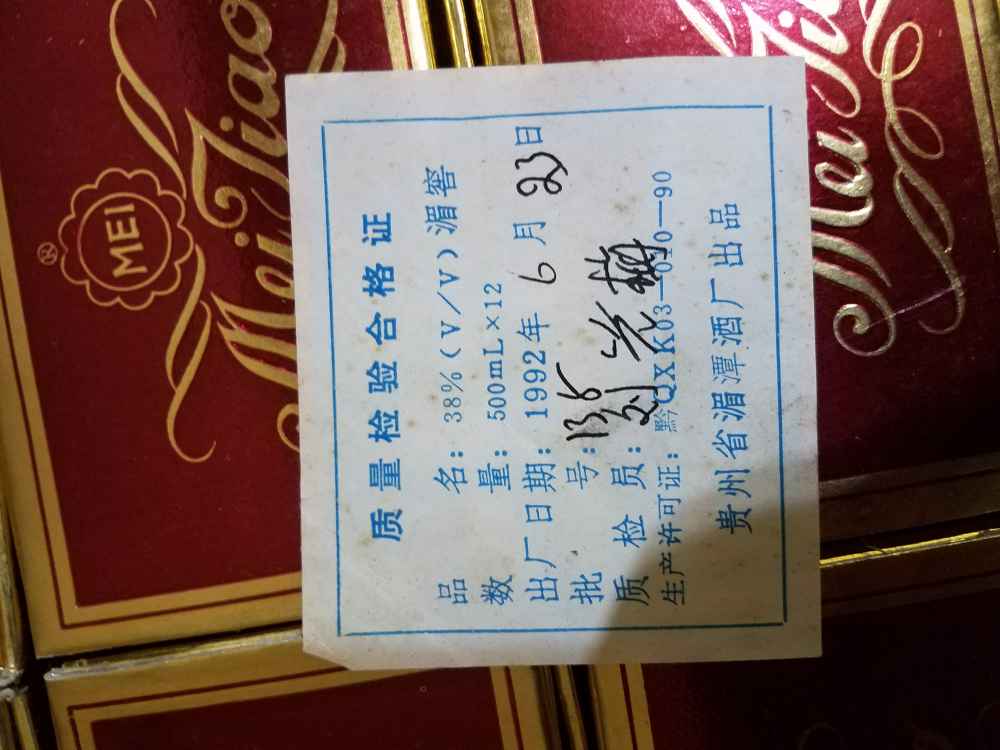 质量检验合格证
品名：38%（V/V）湄窖
数量：500mL×12
出厂日期：1992年6月23日
批号：138
质检员：刘
生产许可证：黔QXK03—010—90
贵州省湄潭酒厂出品
MEI
®
MeiJiao
Mei Jiao